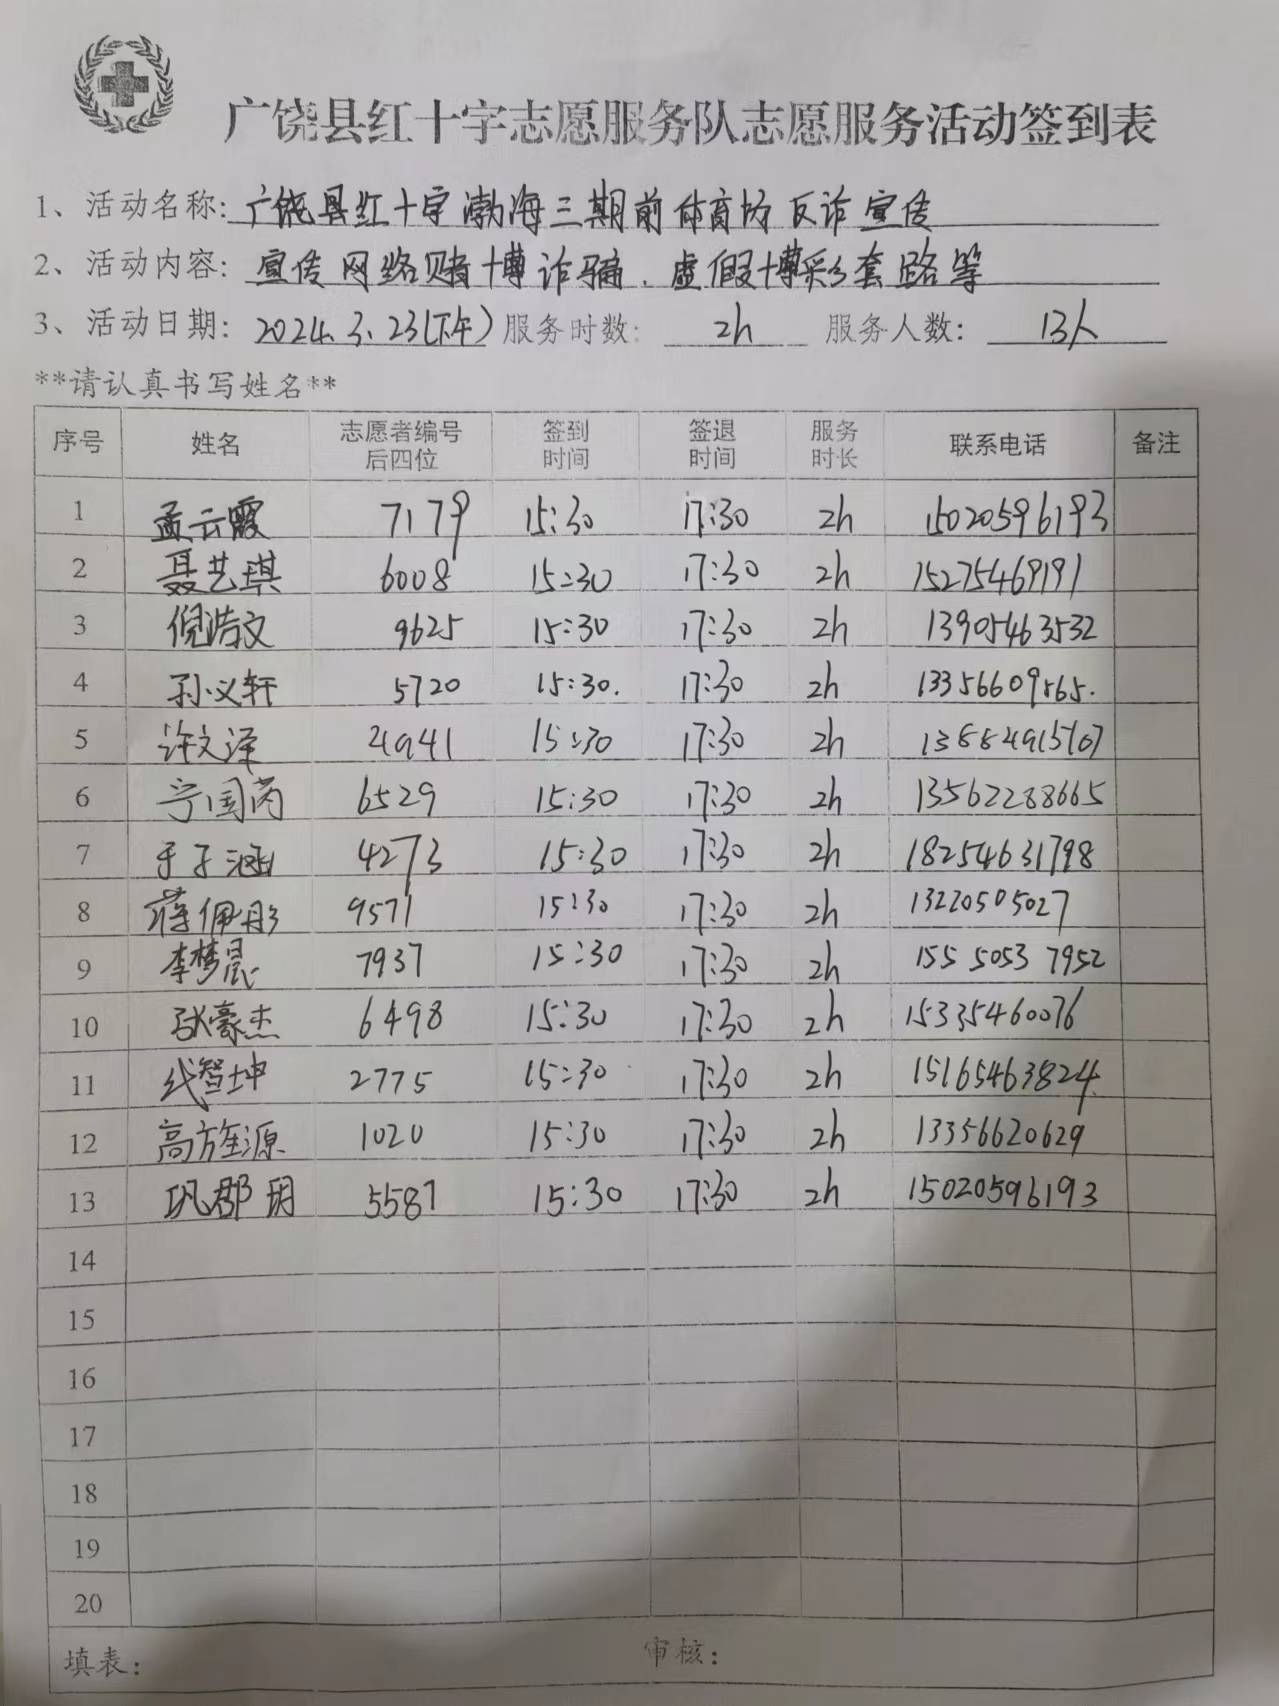 广饶县红十字志愿服务队志愿服务活动签到表
1、活动名称：广饶县红十字渤海三期前体育场反诈宣传
2、活动内容：宣传网络赌博诈骗、虚假博彩套路等
3、活动日期：2024.3.23(下午) 服务时数：2h 服务人数：13人
**请认真书写姓名**
序号 姓名 志愿者编号后四位 签到时间 签退时间 服务时长 联系电话 备注
1 孟云霞 7179 15:30 17:30 2h 15020596193
2 聂艺琪 6008 15:30 17:30 2h 15275469191
3 倪浩文 9625 15:30 17:30 2h 13905463532
4 孙义轩 5720 15:30. 17:30 2h 13356609565.
5 许文泽 4941 15:30 17:30 2h
6 宁国芮 6529 15:30 17:30 2h 13562288665
7 于子涵 4273 15:30 17:30 2h 18254631798
8 蒋佩彤 9571 15:30 17:30 2h 13220505027
9 李梦晨 7937 15:30 17:30 2h 155 5053 7952
10 张豪杰 6498 15:30 17:30 2h 15335460076
11 智坤 2775 15:30 17:30 2h 15165463824
12 高源 1020 15:30 17:30 2h 13356620629
13 巩郡玥 5587 15:30 17:30 2h 15020596193
14
15
16
17
18
19
20
填表： 审核：